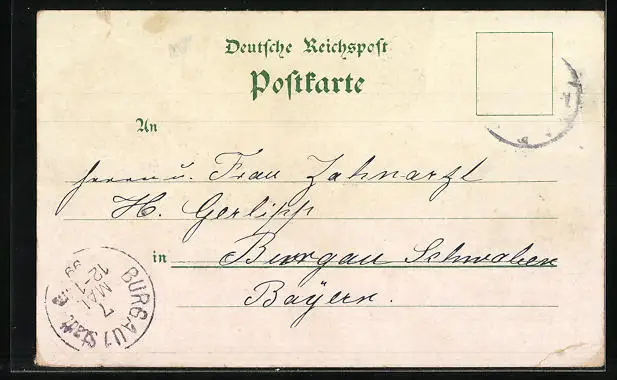 Deutsche Reichspost
Postkarte
An
Herrn u. Frau Zahnarzt
H. Gerlipp
in Burgau Schwaben
Bayern.
BURGAU
7 MAI
12-1
99
Stadt